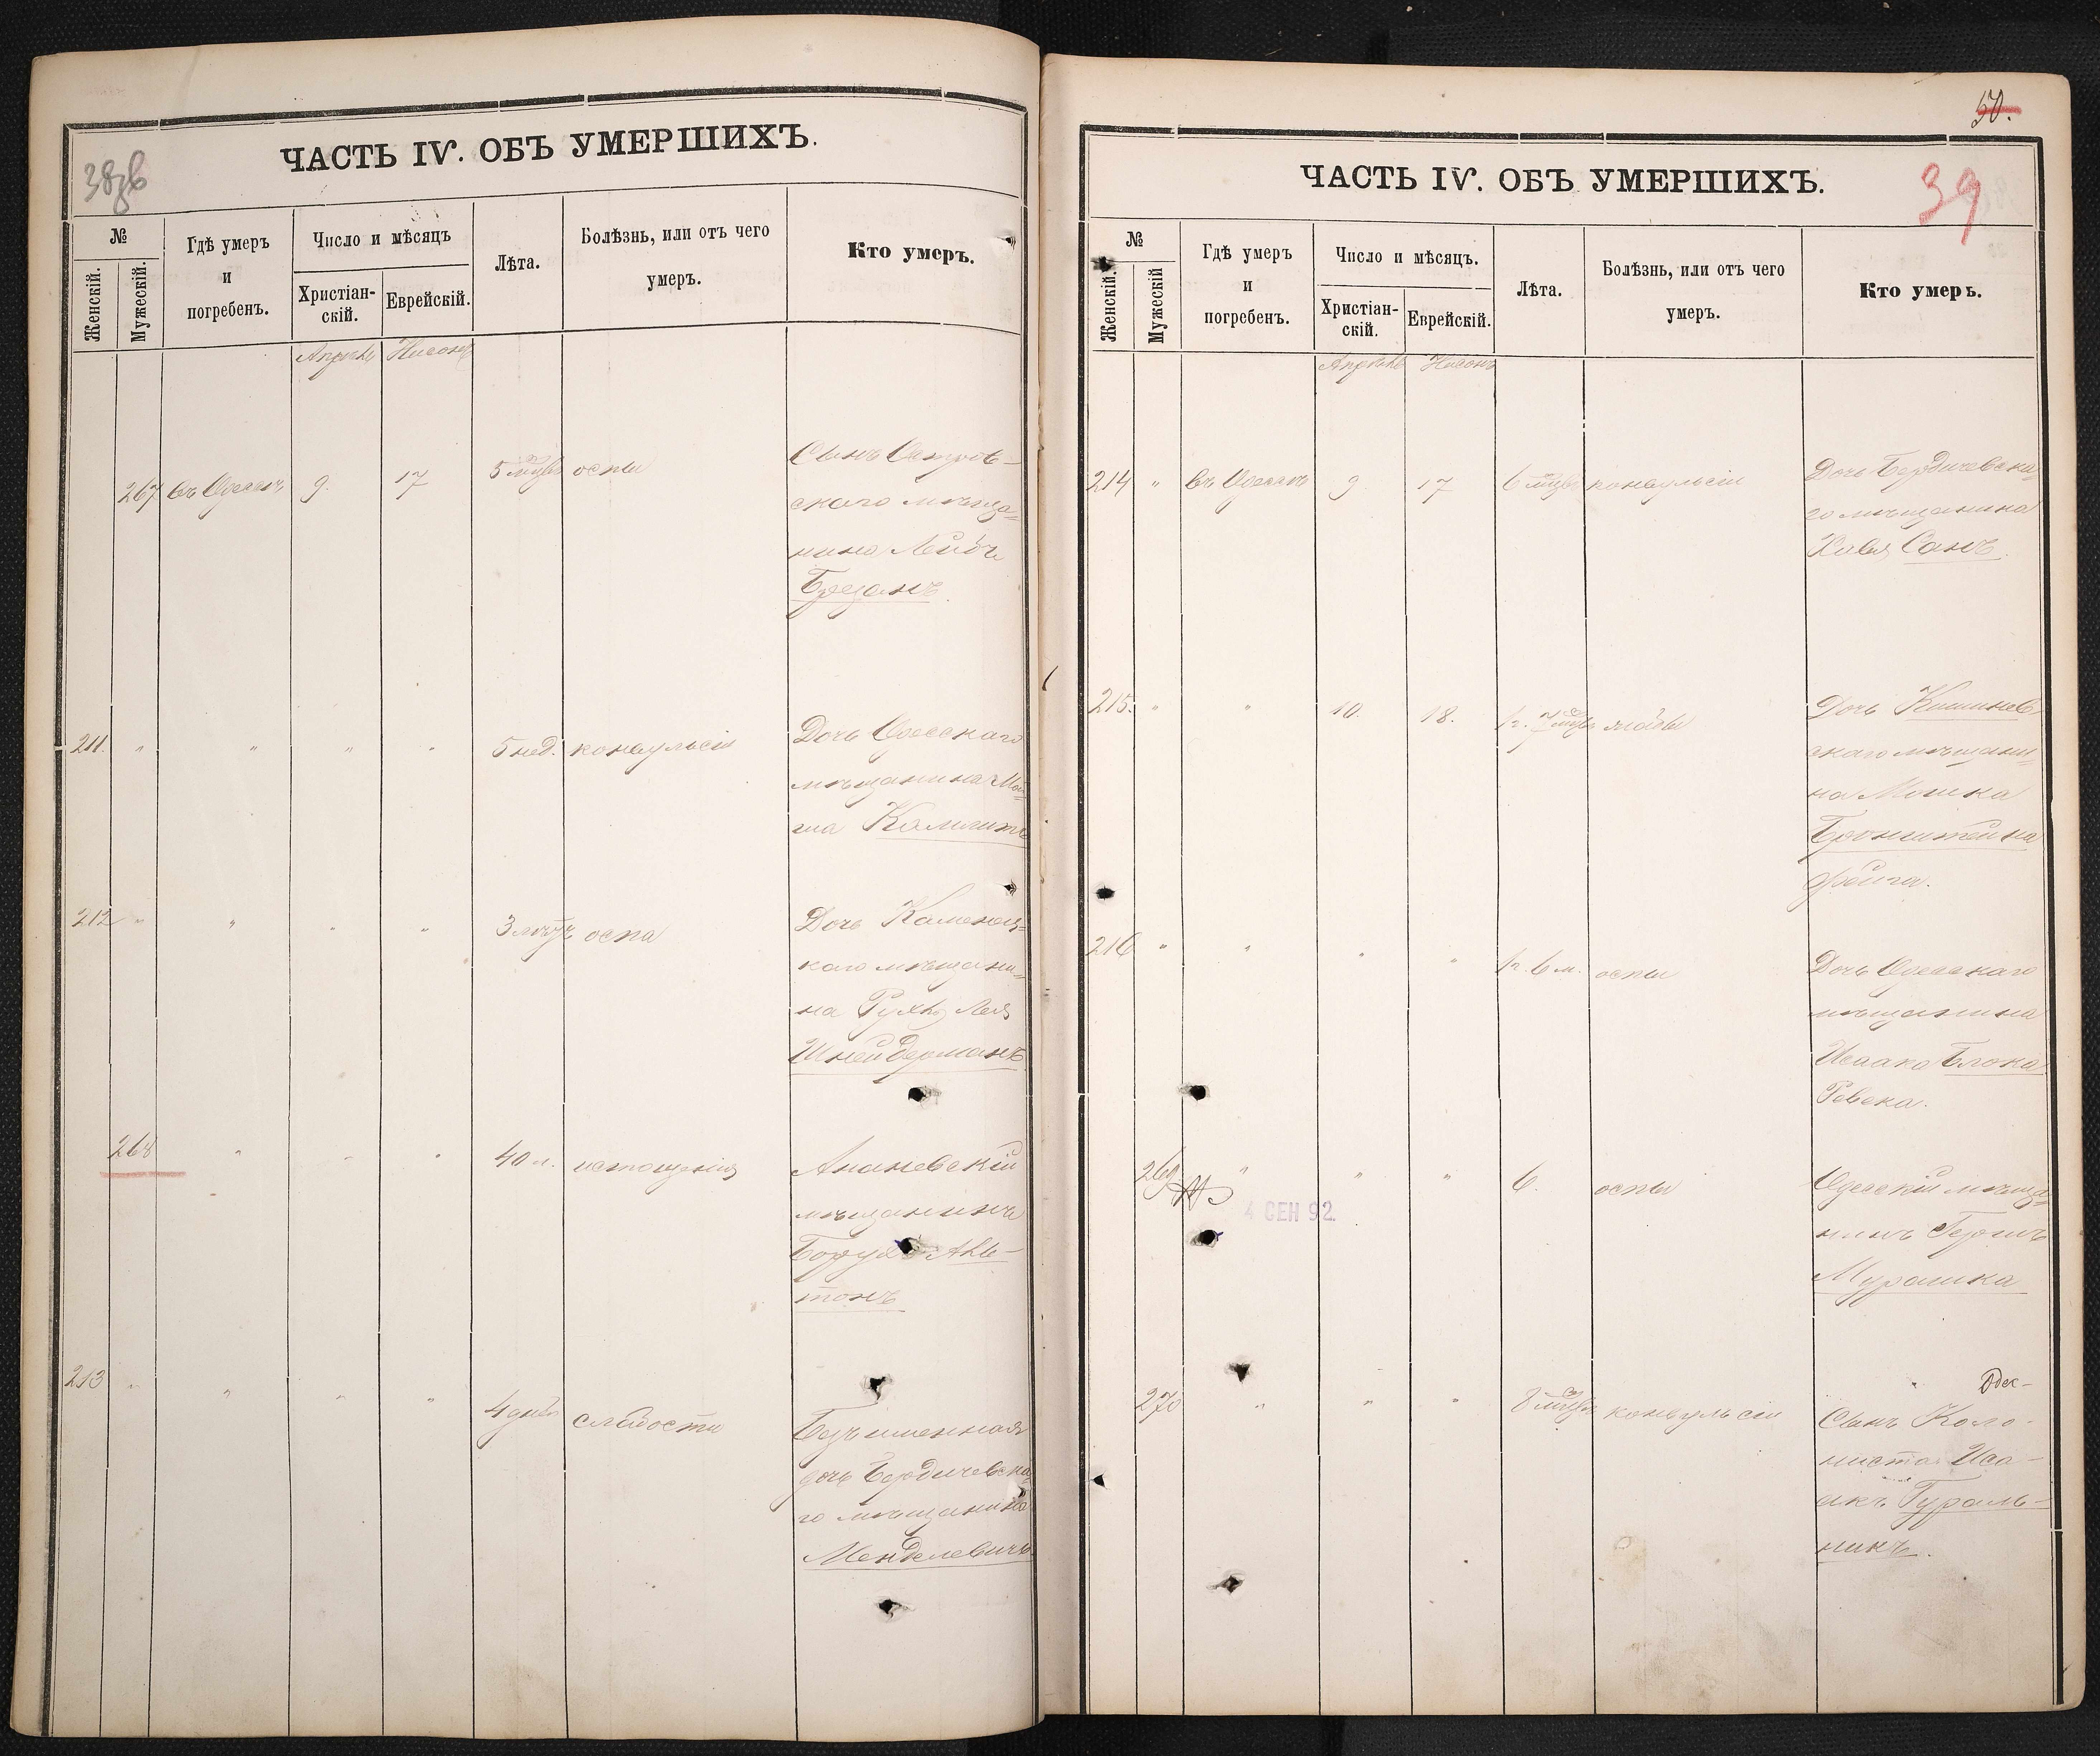 ЧАСТЬ IV. ОБЪ УМЕРШИХЪ.
38зв
№
Женскій.
Мужескій.
Гдѣ умеръ
и
погребенъ.
Число и мѣсяцъ
Христіан-
скій.
Еврейскій.
Лѣта.
Болѣзнь, или отъ чего
умеръ.
Кто умеръ.
Апрѣль Нисонъ
267 въ Одессѣ 9. 17 5 мцвъ оспы
Сынъ Остров-
скаго мѣща-
нина
211. " " " " 5 нед. конвульсіи
Дочь Одесскаго
мѣщанина Мой-
ша
212 " " " " оспа
Дочь Каменец-
каго мѣщани-
на Рухъ Лея
Шнейдерманъ
268 " " " 40 л. истощенія
Ананевскій
мѣщанинъ
Борухъ Аль-
тонъ
213 " " " " 4 дней слабости
Безъименная
дочь Бердичевска-
го мѣщанина
Менделевичъ
50.
ЧАСТЬ IV. ОБЪ УМЕРШИХЪ.
39
№
Женскій.
Мужескій
Гдѣ умеръ
и
погребенъ.
Число и мѣсяцъ.
Христіан-
скій.
Еврейскій.
Лѣта.
Болѣзнь, или отъ чего
умеръ.
Кто умеръ.
Апрѣль Нисонъ
214 " въ Одессѣ 9 17 6 мцвъ конвульсіи
Дочь Бердичевска-
го мѣщанина
Хавя Санъ.
215. " " 10. 18. 1 г. 7 мцвъ
Дочь Кишинев
скаго мѣщани-
на Мошка
Бронштейна
Фейга.
216 " " " " 1 г. 6 м. оспы
Дочь Одесскаго
мѣщанина
Исаака Блока
Ревека.
269 " " " 6. оспы
4 СЕН 92.
Одесскій мѣща-
нинъ Гершъ
Мурашка
270 " " " 8 мцвъ конвульсіи
Одес-
Сынъ Коло-
ниста Иса-
акъ Гураль-
никъ.